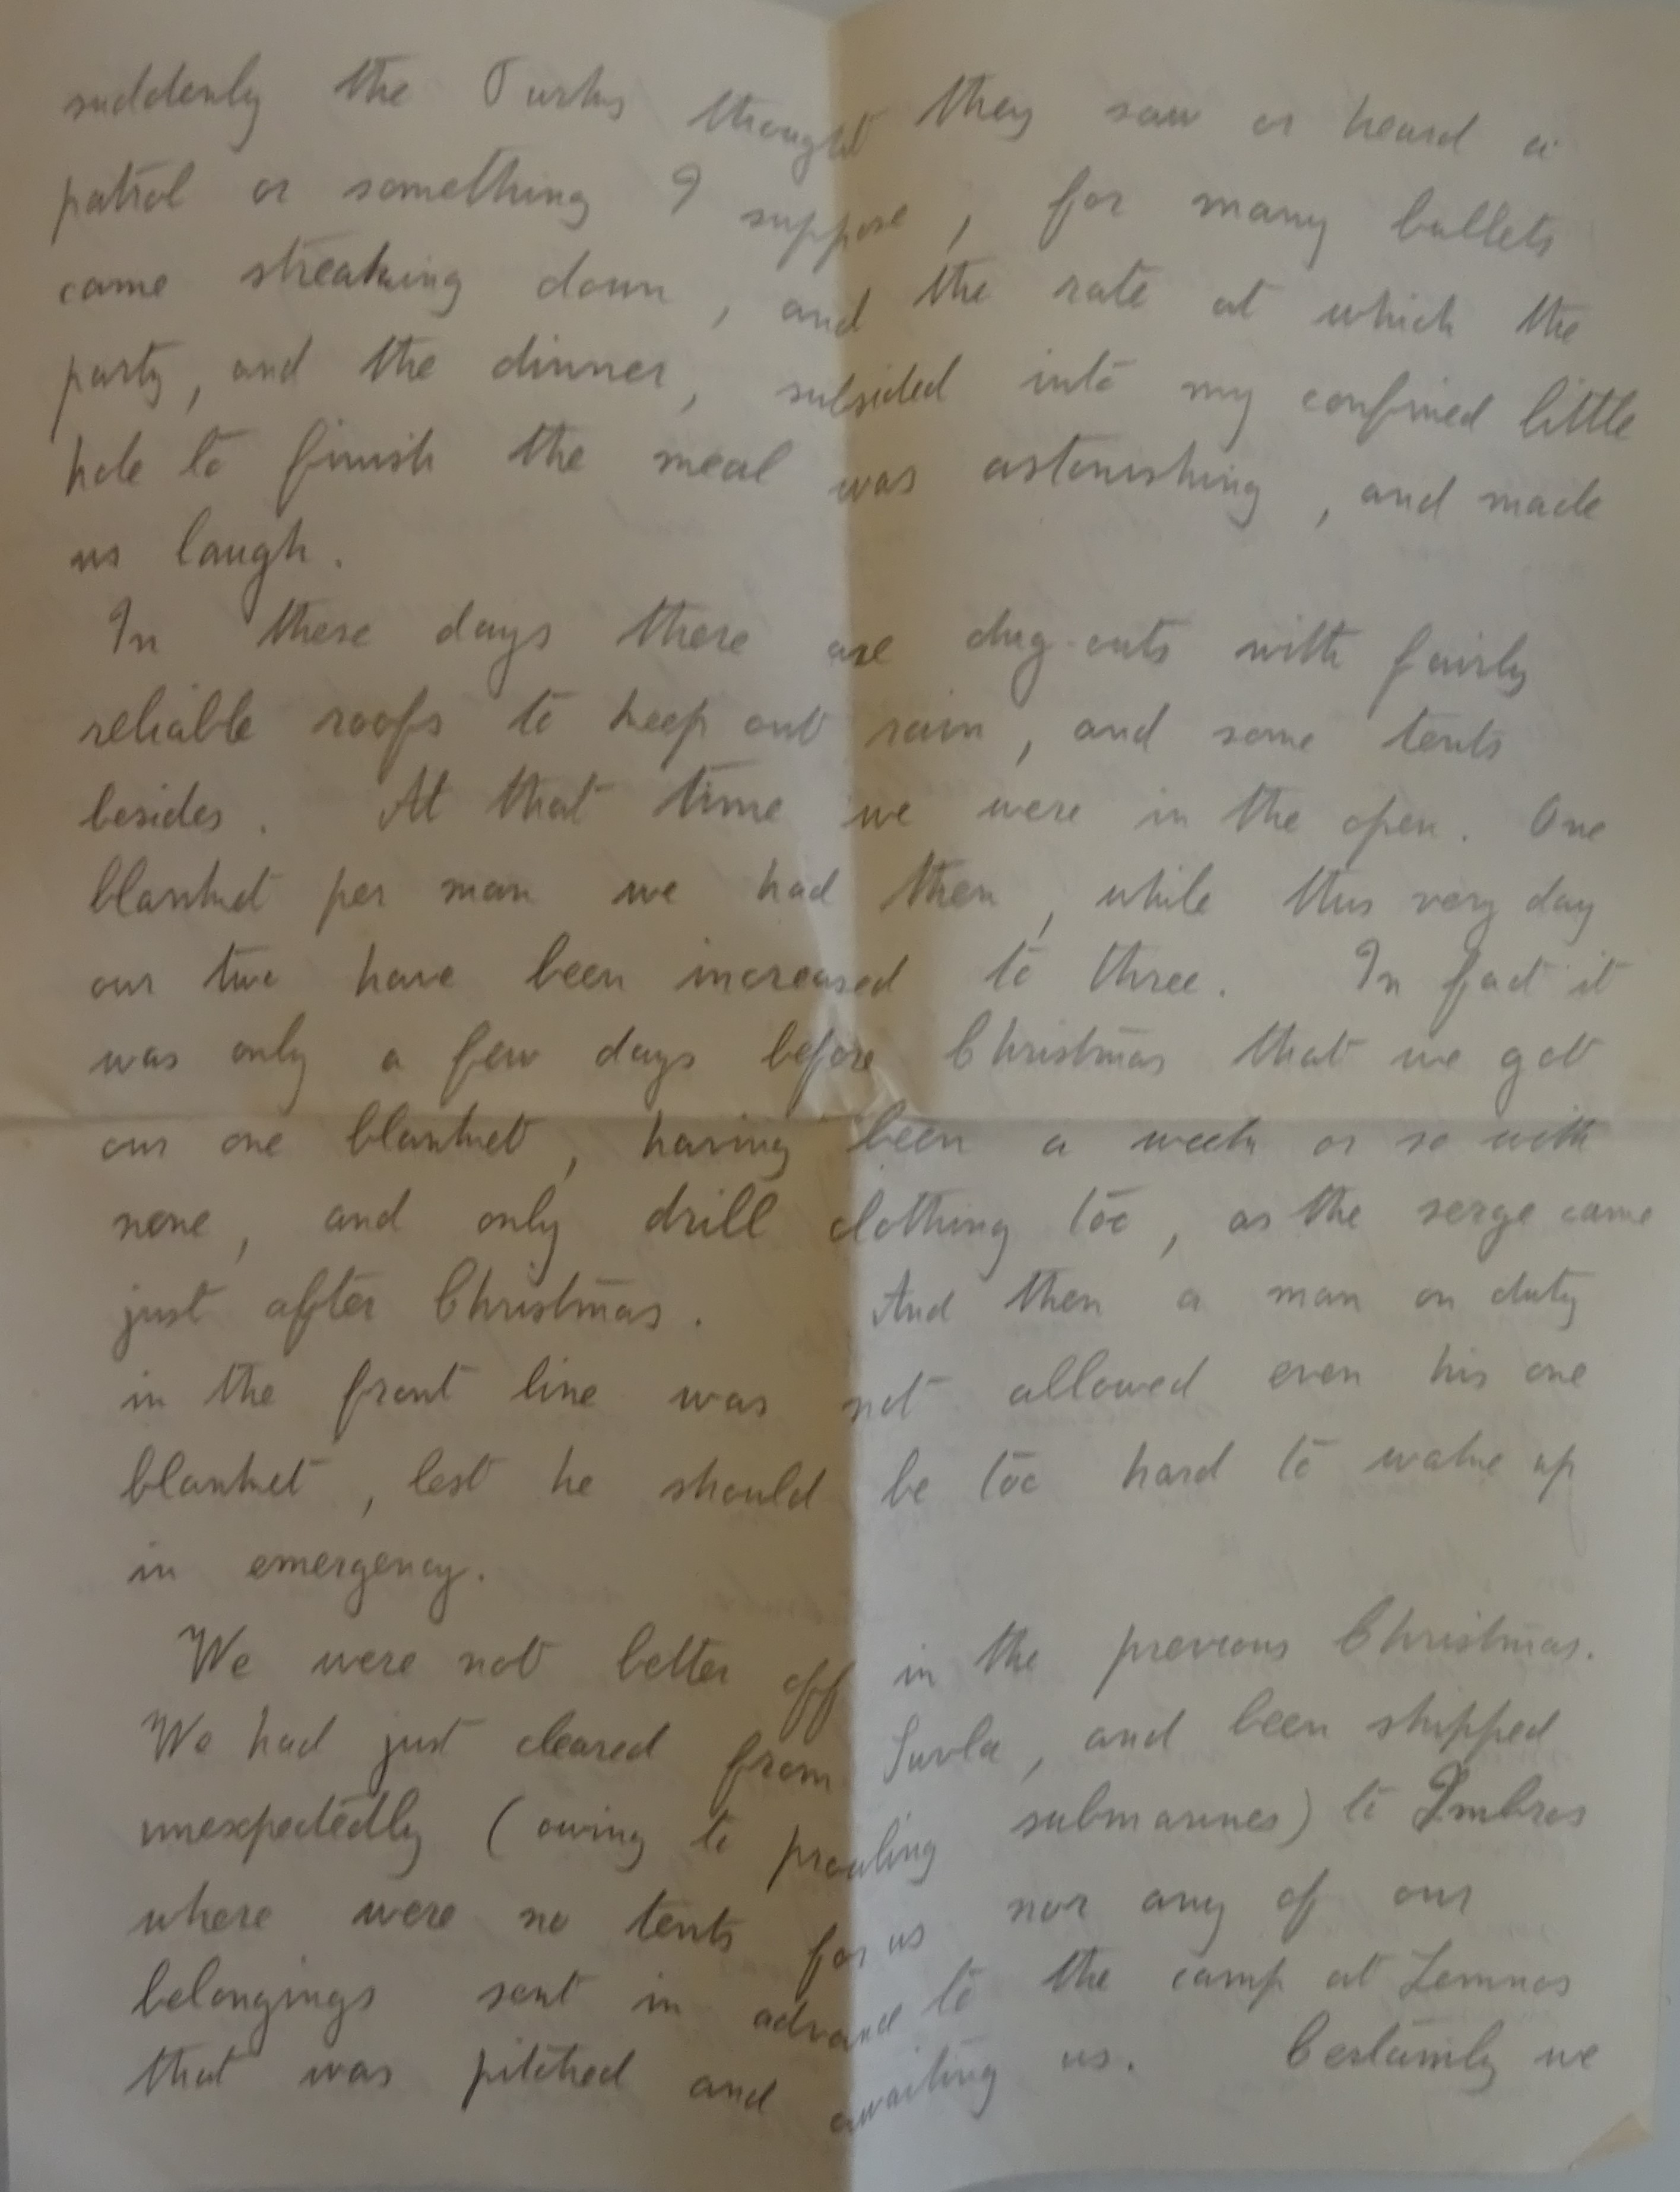 suddenly the Turks thought they saw or heard a
patrol or something I suppose, for many bullets
came streaking down, and the rate at which the
party, and the dinner, subsided into my confined little
hole to finish the meal was astonishing, and made
us laugh.
In these days there are dug-outs with fairly
reliable roofs to keep out rain, and some tents
besides. At that time we were in the open. One
blanket per man we had then, while this very day
our two have been increased to three. In fact it
was only a few days before Christmas that we got
our one blanket, having been a week or so with
none, and only drill clothing too, as the serge came
just after Christmas. And then a man on duty
in the front line was not allowed even his one
blanket, lest he should be too hard to wake up
in emergency.
We were not better off in the previous Christmas.
We had just cleared from Suvla, and been shipped
unexpectedly (owing to prowling submarines) to Imbros
where were no tents for us nor any of our
belongings sent in advance to the camp at Lemnos
that was pitched and awaiting us. Certainly we